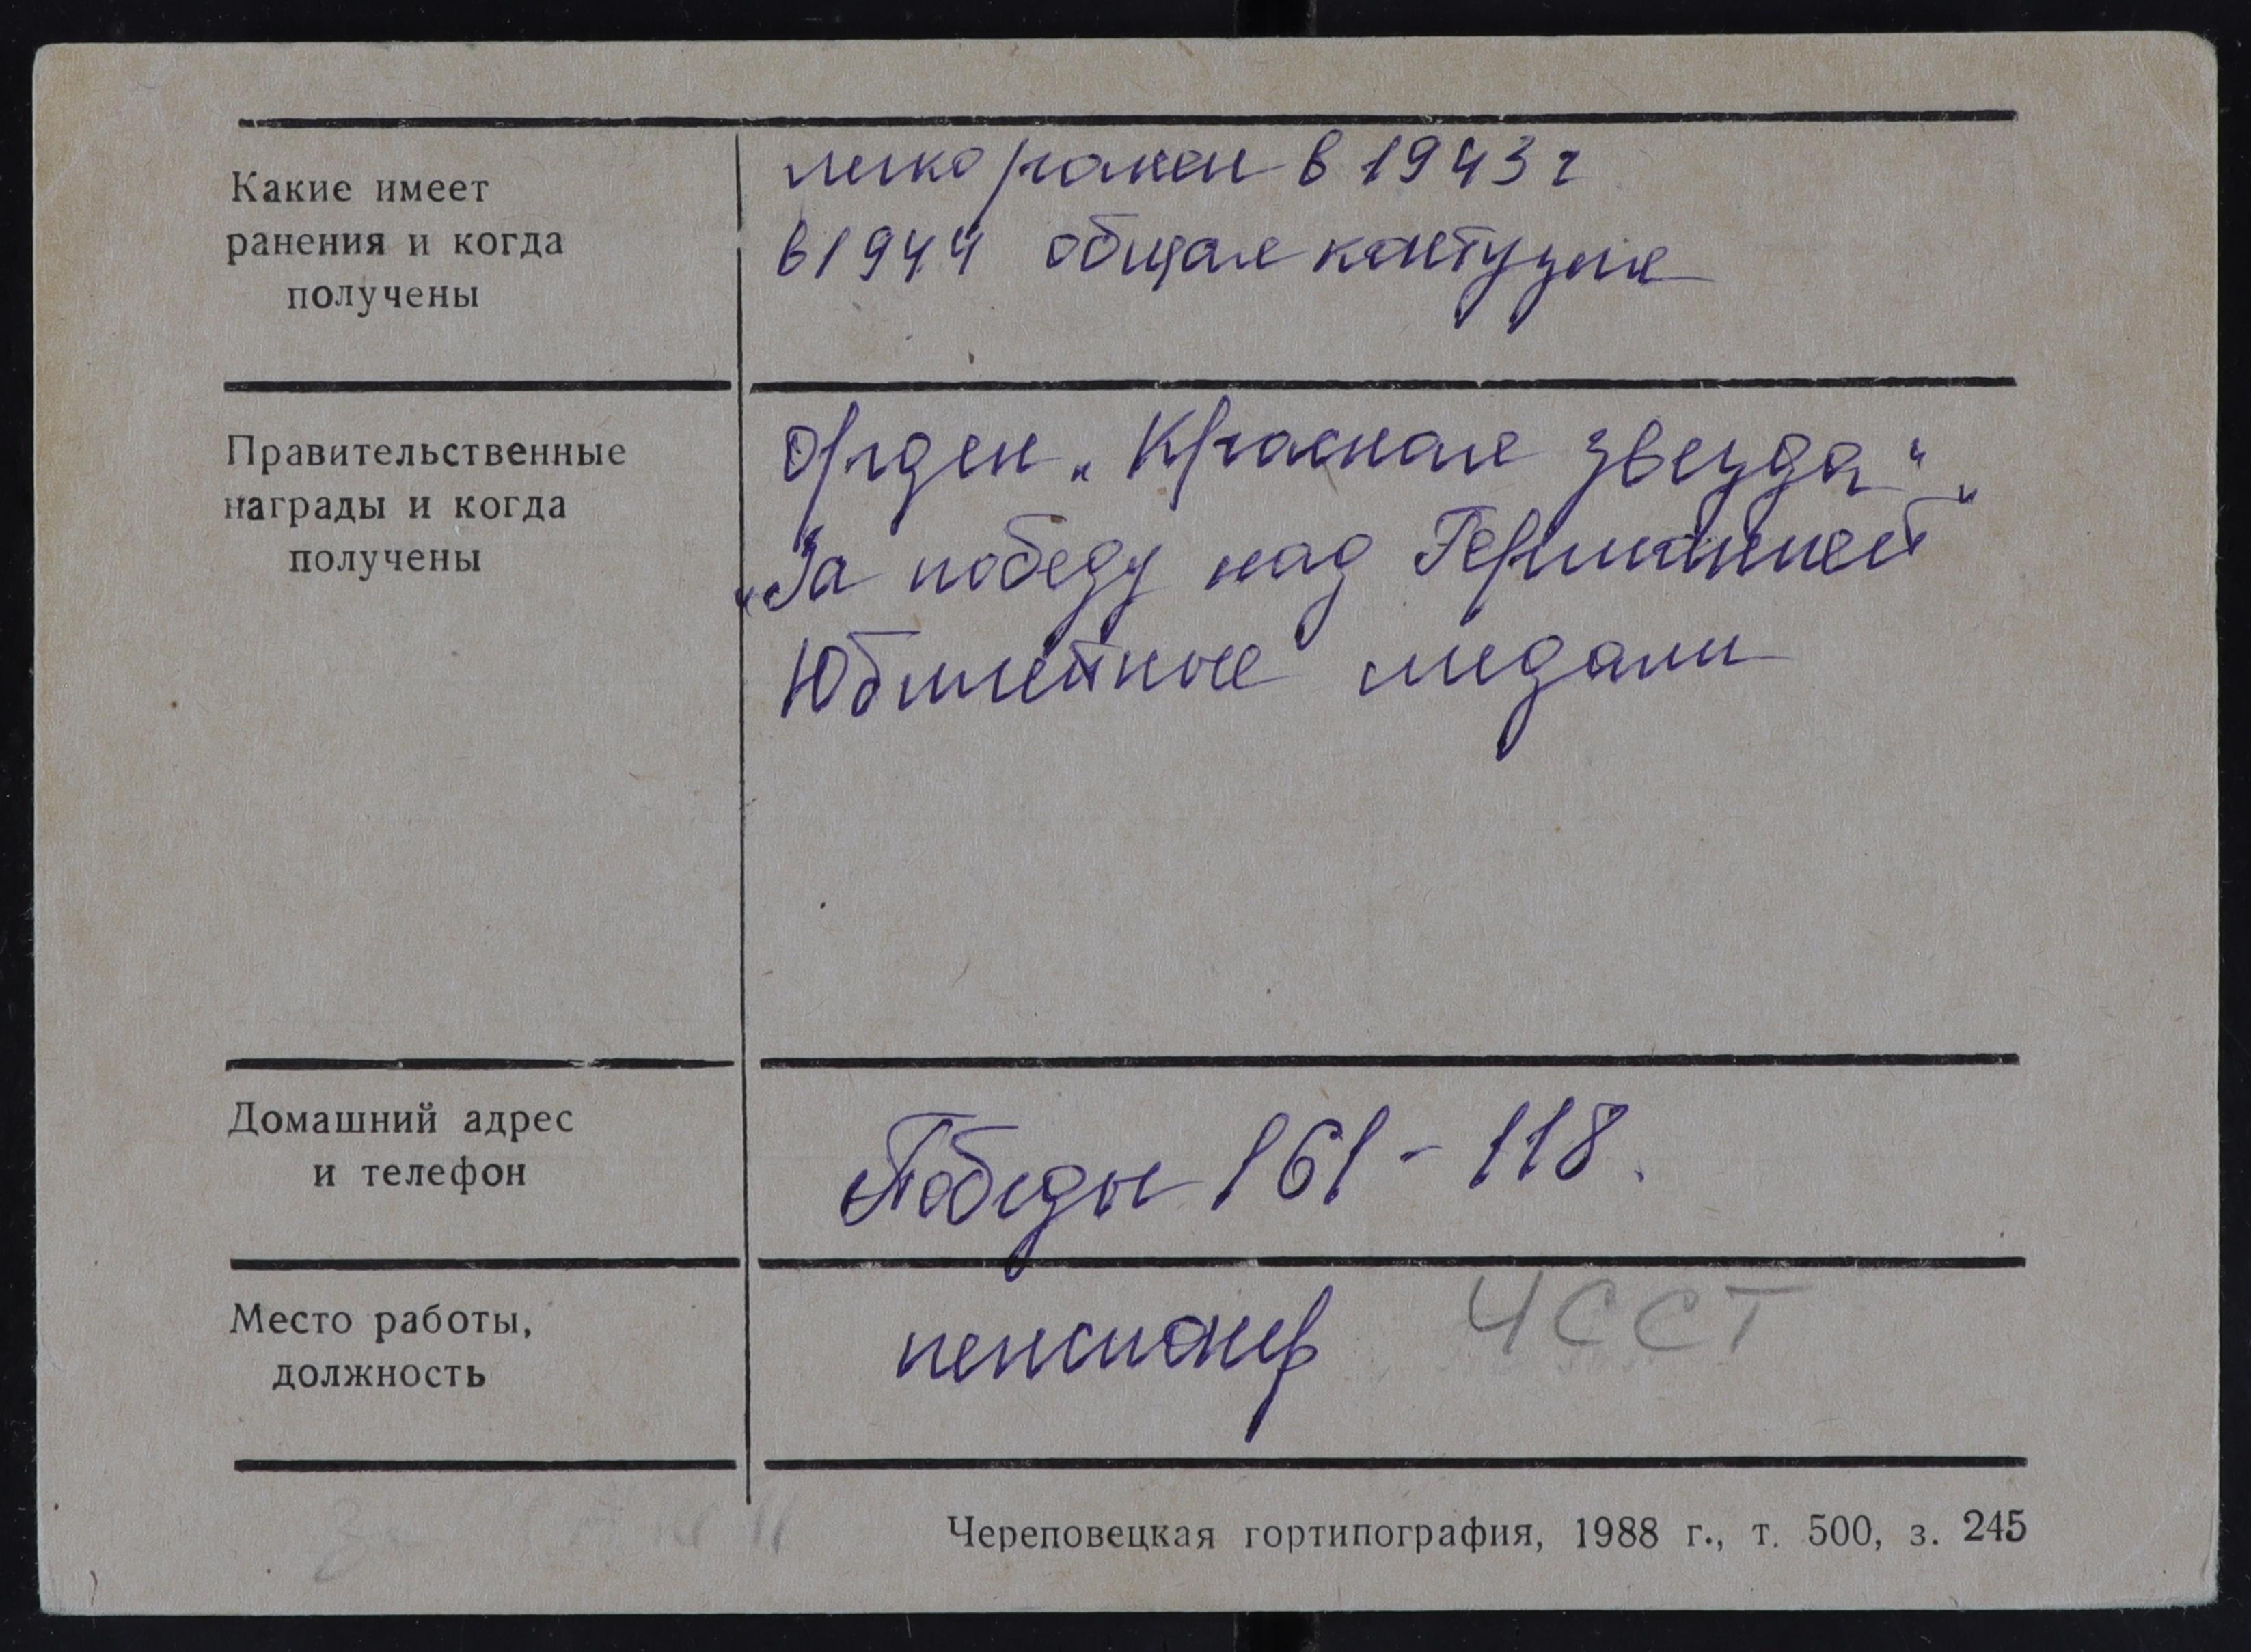 Какие имеет
ранения и когда
получены
легко ранен в 1943 г
в 1944 общая контузия
Правительственные
награды и когда
получены
Орден „Красная звезда"
„За победу над Германией"
Юбилейные медали
Домашний адрес
и телефон
Победы 161-118.
Место работы,
должность
пенсионер ЧССТ
Череповецкая гортипография, 1988 г., т. 500, з. 245